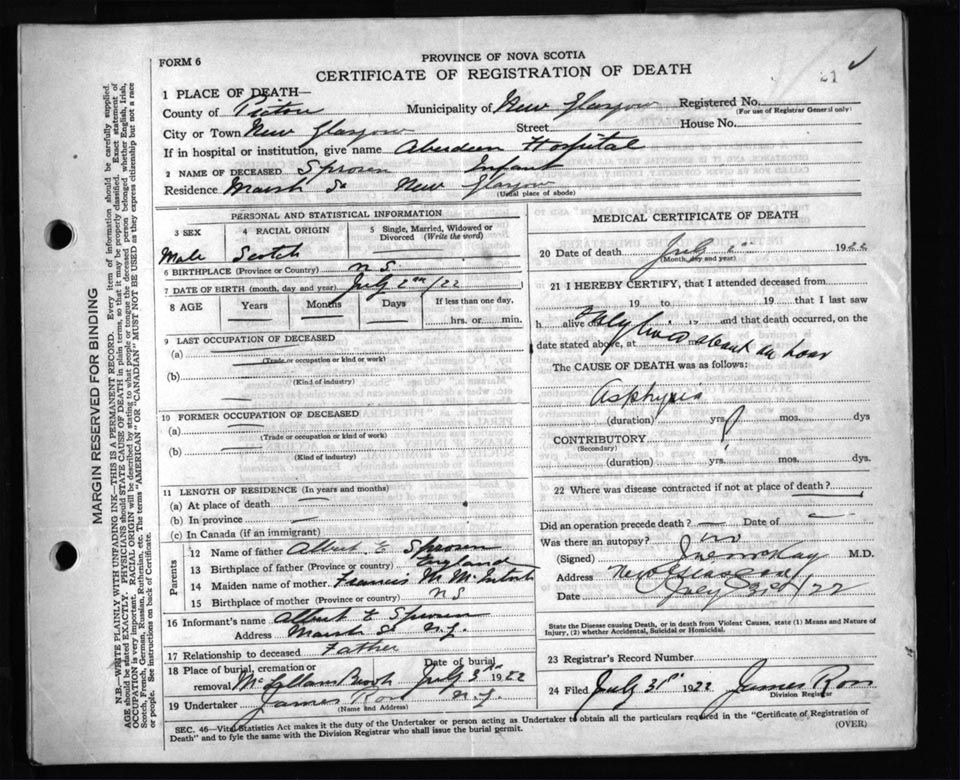 FORM 6
PROVINCE OF NOVA SCOTIA
CERTIFICATE OF REGISTRATION OF DEATH
21
1 PLACE OF DEATH—
County of Pictou Municipality of New Glasgow Registered No.
(For use of Registrar General only)
City or Town New Glasgow Street House No.
If in hospital or institution, give name Aberdeen Hospital
2 NAME OF DECEASED Sproson Infant
Residence Marsh St New Glasgow
(Usual place of abode)
PERSONAL AND STATISTICAL INFORMATION
3 SEX 4 RACIAL ORIGIN 5 Single, Married, Widowed or Divorced (Write the word)
Male Scotch
6 BIRTHPLACE (Province or Country) N S
7 DATE OF BIRTH (month, day and year) July 2nd/22
8 AGE Years Months Days If less than one day,
hrs. or min.
9 LAST OCCUPATION OF DECEASED
(a)
(Trade or occupation or kind or work)
(b)
(Kind of industry)
10 FORMER OCCUPATION OF DECEASED
(a)
(Trade or occupation or kind of work)
(b)
(Kind of industry)
11 LENGTH OF RESIDENCE (In years and months)
(a) At place of death
(b) In province
(c) In Canada (if an immigrant)
Parents
12 Name of father Albert E Sproson
13 Birthplace of father (Province or country) England
14 Maiden name of mother Francis M McIntosh
15 Birthplace of mother (Province or country) N S
16 Informant's name Albert E Sproson
Address Marsh St N.G.
17 Relationship to deceased Father
18 Place of burial, cremation or removal McLellans Brook Date of burial July 3rd 1922
19 Undertaker James Ross N.G.
(Name and Address)
MEDICAL CERTIFICATE OF DEATH
20 Date of death July 1922
(Month, day and year)
21 I HEREBY CERTIFY, that I attended deceased from
19 to 19 that I last saw
h alive on 19 and that death occurred, on
only lived about an hour
date stated above, at m.
The CAUSE OF DEATH was as follows:
Asphyxia
(duration) yrs. mos. dys
CONTRIBUTORY
(Secondary)
(duration) yrs. mos. dys.
22 Where was disease contracted if not at place of death?
Did an operation precede death? Date of
Was there an autopsy? no
(Signed) McKay M.D.
Address New Glasgow
Date July 3rd/22
State the Disease causing Death, or in death from Violent Causes, state (1) Means and Nature of Injury, (2) whether Accidental, Suicidal or Homicidal.
23 Registrar's Record Number
24 Filed July 3rd 1922 James Ross
Division Registrar
SEC. 46—Vital Statistics Act makes it the duty of the Undertaker or person acting as Undertaker to obtain all the particulars required in the "Certificate of Registration of
Death" and to fyle the same with the Division Registrar who shall issue the burial permit.
(OVER)
MARGIN RESERVED FOR BINDING
N.B.—WRITE PLAINLY WITH UNFADING INK—THIS IS A PERMANENT RECORD. Every item of information should be carefully supplied.
AGE should be stated EXACTLY. PHYSICIANS should STATE CAUSE OF DEATH in plain terms, so that it may be properly classified. Exact statement of
OCCUPATION is very important. RACIAL ORIGIN will be described by stating to what people or tongue the deceased person belonged whether English, Irish,
Scotch, French, German, Russian, Ruthenian, etc. The terms "AMERICAN" OR "CANADIAN" MUST NOT BE USED as they express citizenship but not a race
or people. See instructions on back of Certificate.